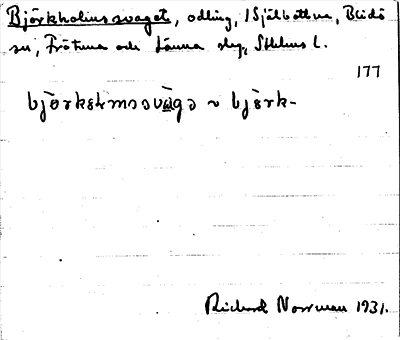 Björkholmssvaget, odling, 1 Själbottna, Blidö
sn, Frötuna och Länna skg, Sthlms l.
177
Richard Norrman 1931.